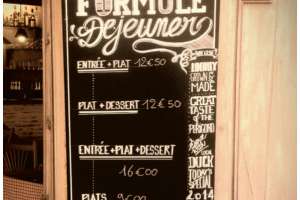 FORMULE
Dejeuner
ENTRÉE + PLAT 12€50
PLAT + DESSERT 12€50
ENTRÉE+PLAT+DESSERT
16€00
PLATS 9€00
GROWN &
MADE
GREAT
TASTE
OF THE
PERIGORD
LOCAL
DUCK
TODAY'S
SPECIAL
2014